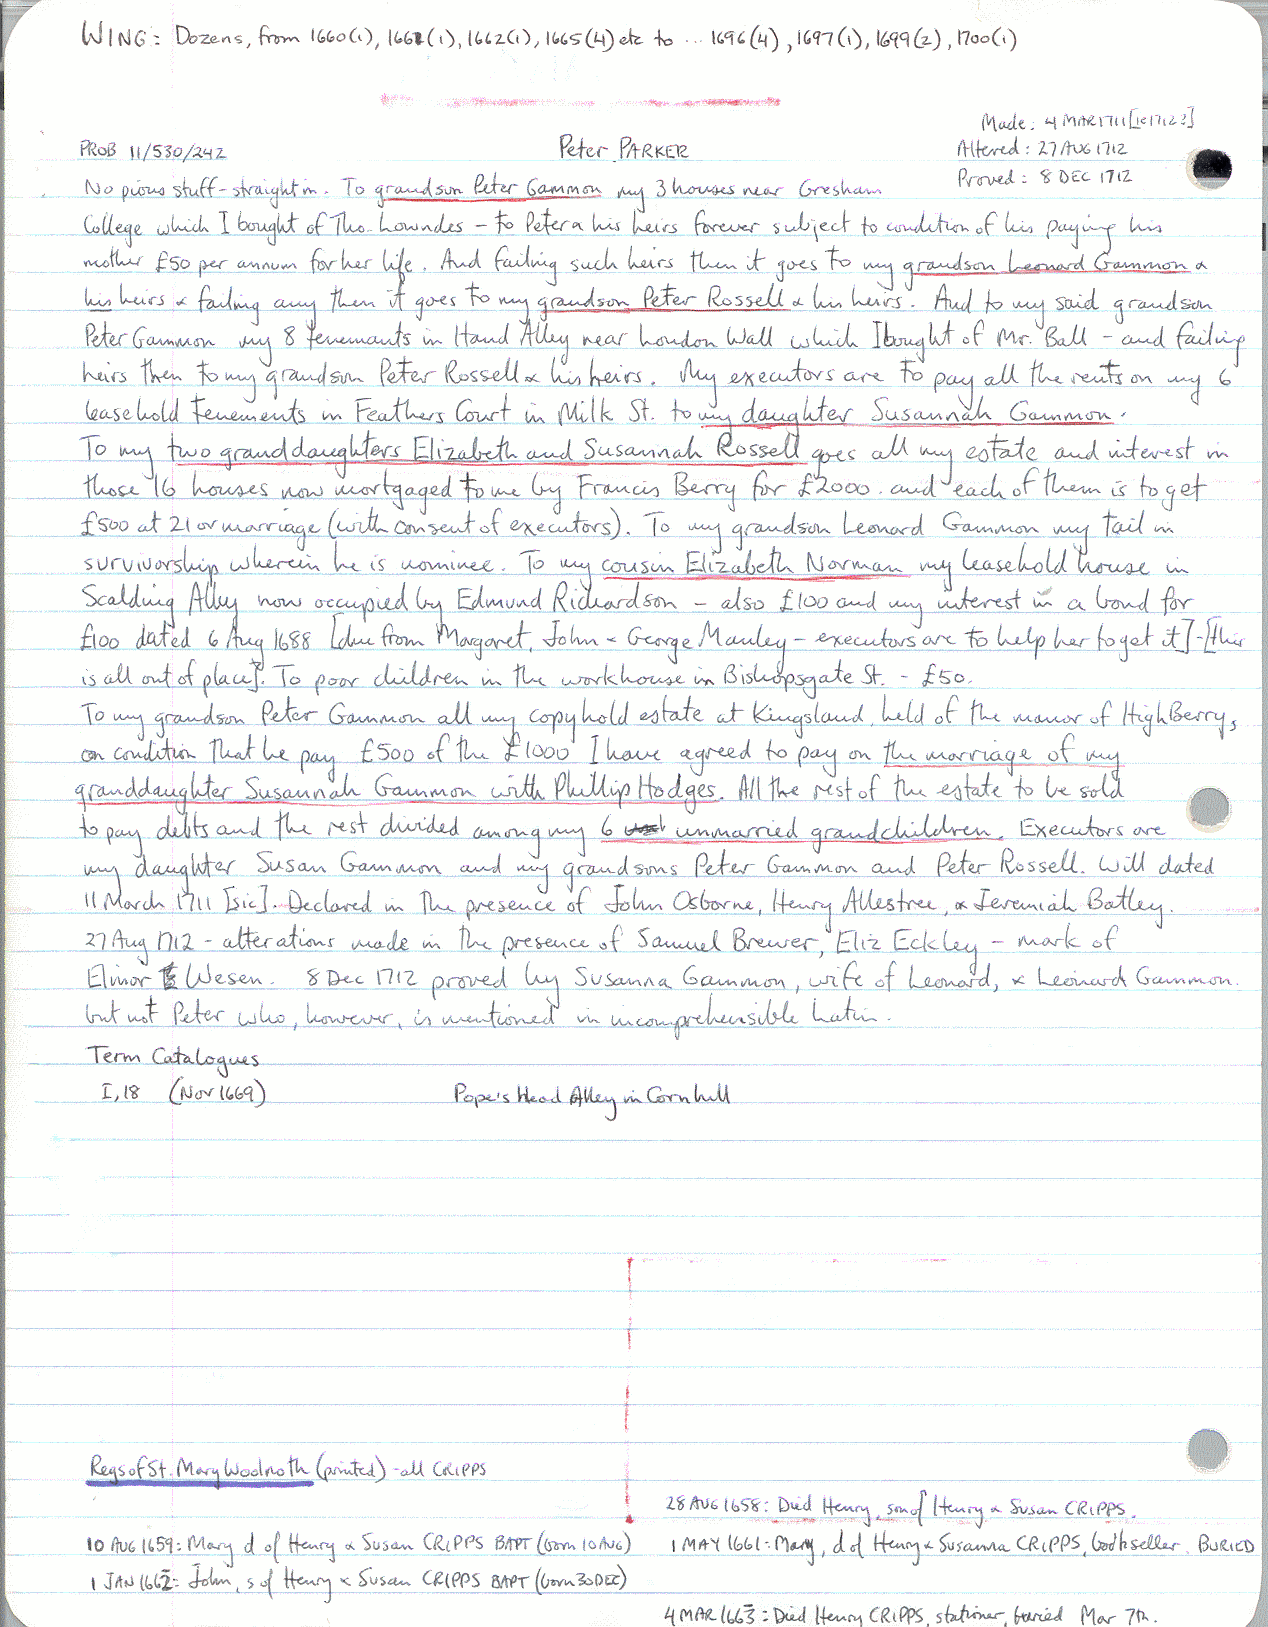 WING: Dozens, from 1660(1), 1661(1), 1662(1), 1665(4) etc to ... 1696(4), 1697(1), 1699(2), 1700(1)
Made: 4 MAR 1711 [ie 1712?]
PROB 11/530/242 Peter PARKER Altered: 27 AUG 1712
Proved: 8 DEC 1712
No pious stuff - straight in. To grandson Peter Gammon my 3 houses near Gresham
College which I bought of Tho. Lowndes - to Peter & his heirs forever subject to condition of his paying his
mother £50 per annum for her life. And failing such heirs then it goes to my grandson Leonard Gammon &
his heirs & failing any then it goes to my grandson Peter Rossell & his heirs. And to my said grandson
Peter Gammon my 8 tenemants in Hand Alley near London Wall which I bought of Mr. Ball - and failing
heirs then to my grandson Peter Rossell & his heirs. My executors are to pay all the rents on my 6
leasehold tenements in Feathers Court in Milk St. to my daughter Susannah Gammon.
To my two granddaughters Elizabeth and Susannah Rossell goes all my estate and interest in
those 16 houses now mortgaged to me by Francis Berry for £2000. and each of them is to get
£500 at 21 or marriage (with consent of executors). To my grandson Leonard Gammon my tail in
survivorship wherein he is nominee. To my cousin Elizabeth Norman my leasehold house in
Scalding Alley now occupied by Edmund Richardson - also £100 and my interest in a bond for
£100 dated 6 Aug 1688 [due from Margaret, John & George Manley - executors are to help her to get it] - [this
is all out of place]. To poor children in the workhouse in Bishopsgate St. - £50.
To my grandson Peter Gammon all my copyhold estate at Kingsland, held of the manor of HighBerry,
on condition that he pay £500 of the £1000 I have agreed to pay on the marriage of my
granddaughter Susannah Gammon with Phillip Hodges. All the rest of the estate to be sold
to pay debts and the rest divided among my 6 unmarried grandchildren. Executors are
my daughter Susan Gammon and my grandsons Peter Gammon and Peter Rossell. Will dated
11 March 1711 [sic]. Declared in the presence of John Osborne, Henry Allestree, & Jeremiah Batley.
27 Aug 1712 - alterations made in the presence of Samuel Brewer, Eliz Eckley - mark of
Elinor E Wesen. 8 Dec 1712 proved by Susanna Gammon, wife of Leonard, & Leonard Gammon.
but not Peter who, however, is mentioned in incomprehensible Latin.
Term Catalogues
I, 18 (Nov 1669) Pope's Head Alley in Cornhill
Regs of St. Mary Woolnoth (printed) - all CRIPPS
28 AUG 1658: Died Henry, son of Henry & Susan CRIPPS.
10 AUG 1659: Mary d of Henry & Susan CRIPPS BAPT (born 10 AUG) 1 MAY 1661: Mary, d of Henry & Susanna CRIPPS, bookseller. BURIED
1 JAN 1662: John, s of Henry & Susan CRIPPS BAPT (born 30 DEC)
4 MAR 1663: Died Henry CRIPPS, stationer, buried Mar 7th.